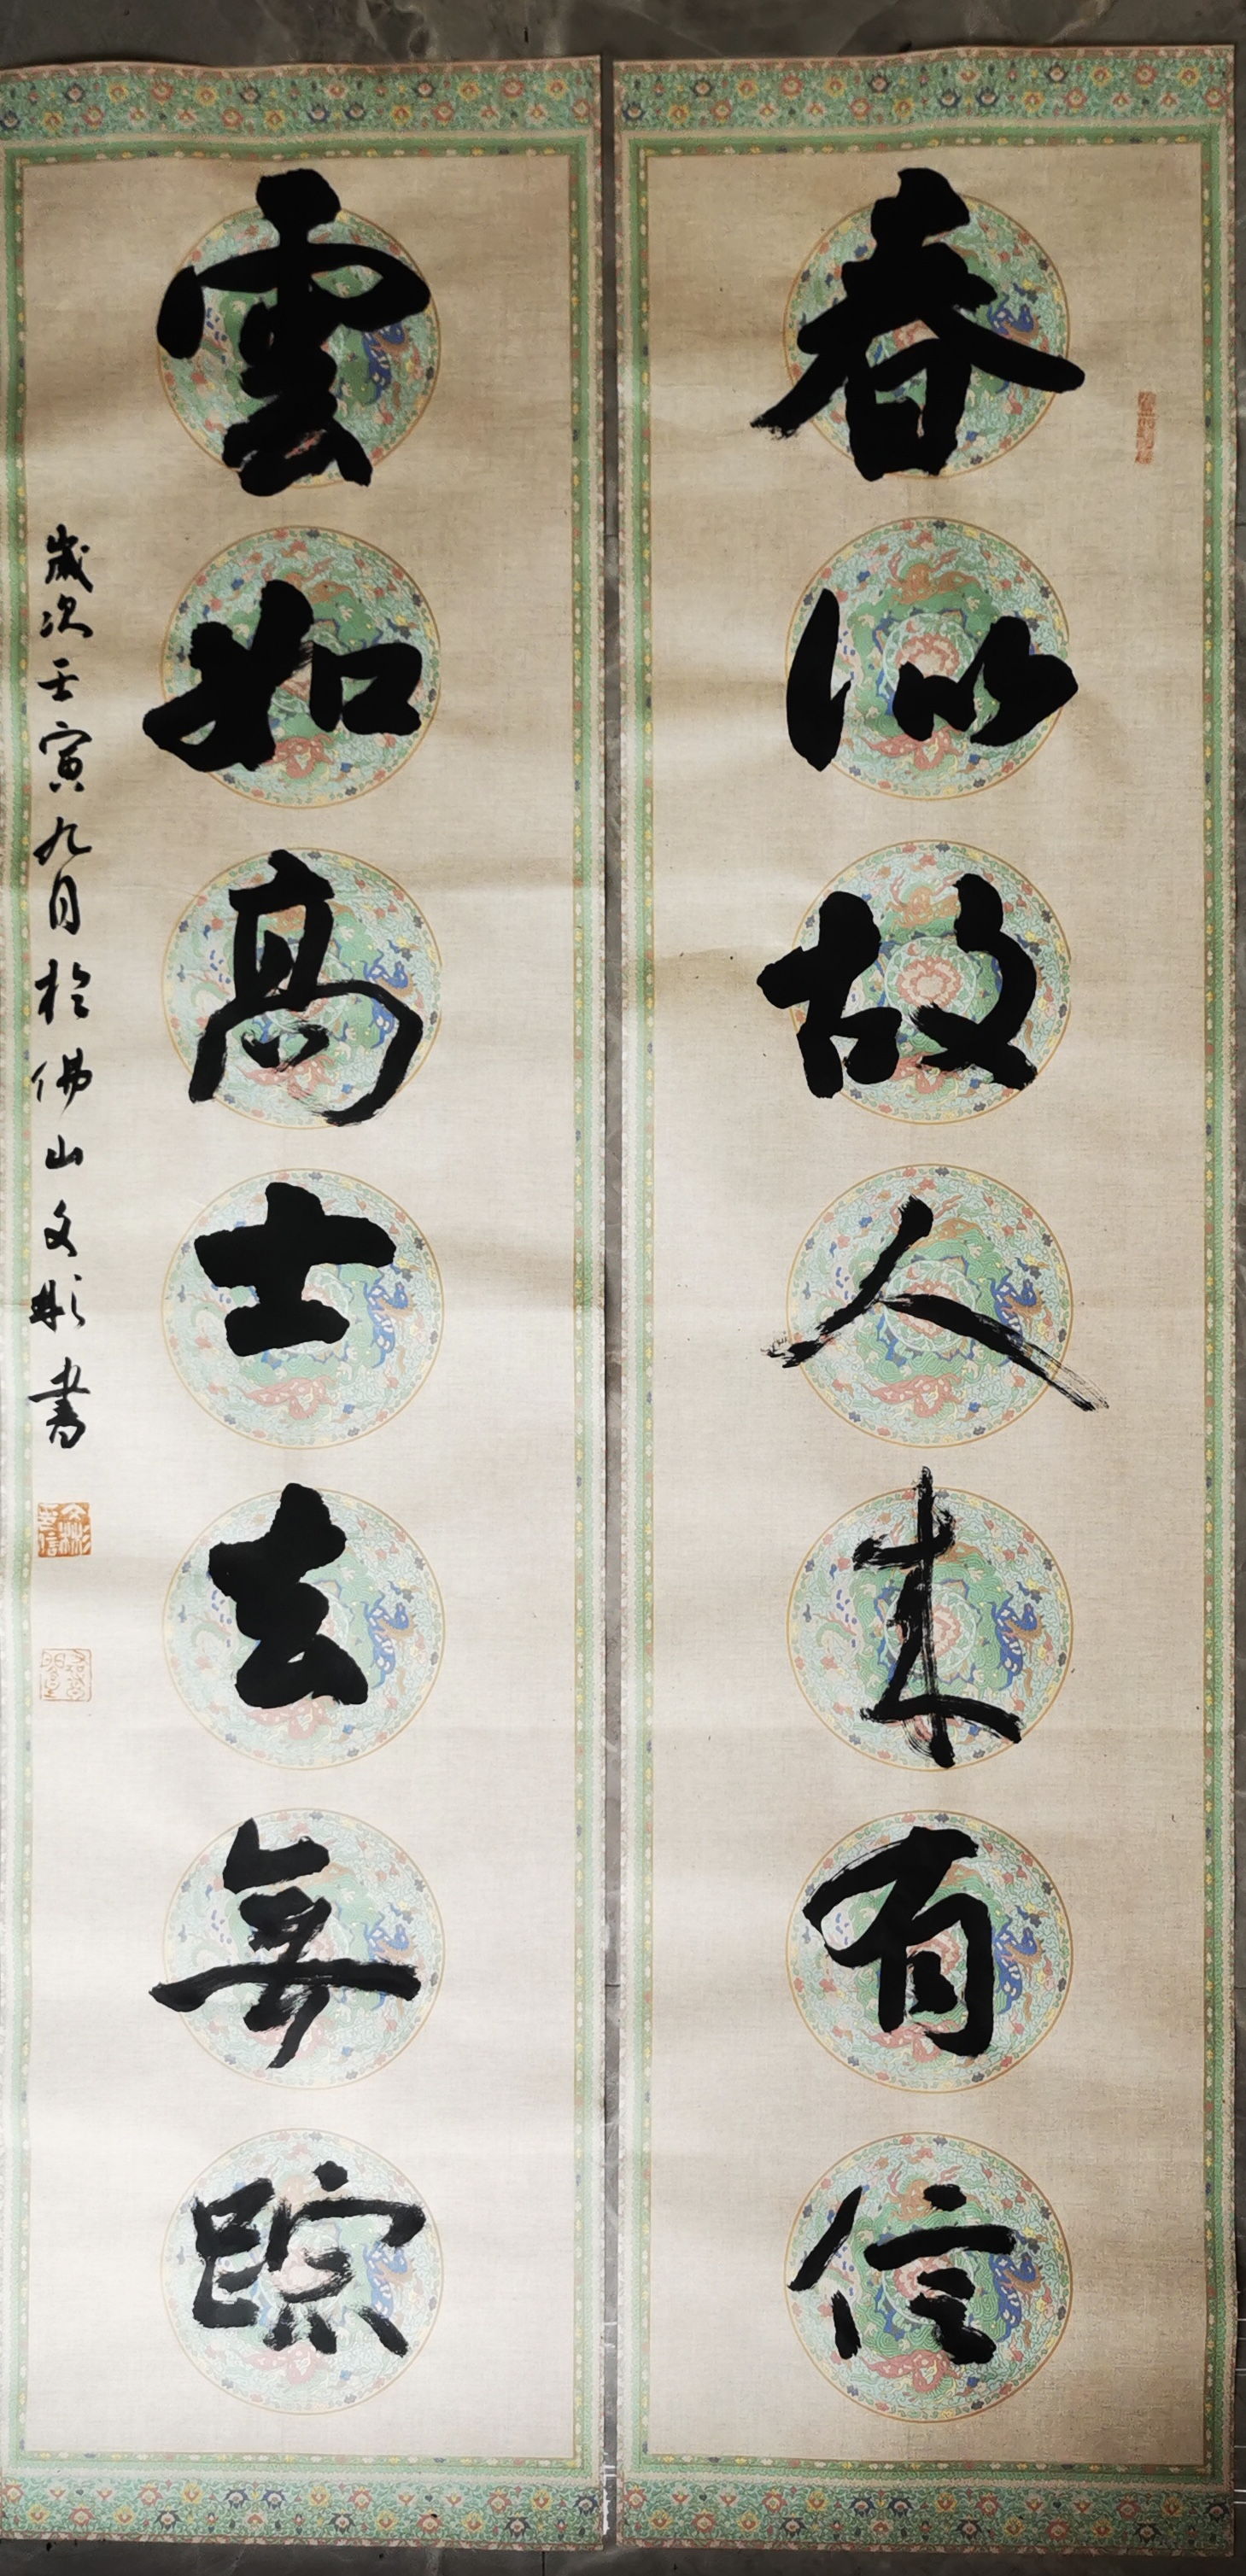 春似故人来有信
雲如高士去無踪
歲次壬寅九月於佛山文彬書
文彬印信